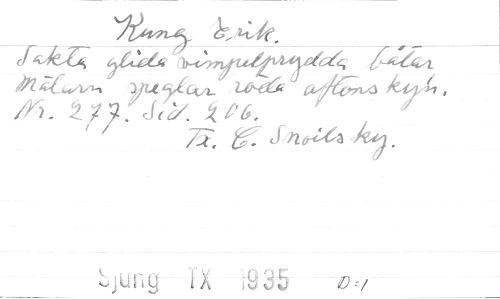 Kung Erik.
Sakta glida vimpelprydda båtar
Mälarn speglar röda aftonskyn.
Nr. 277. Sid. 206.
Tx. C. Snoilsky.
Sjung IX 1935 D=1